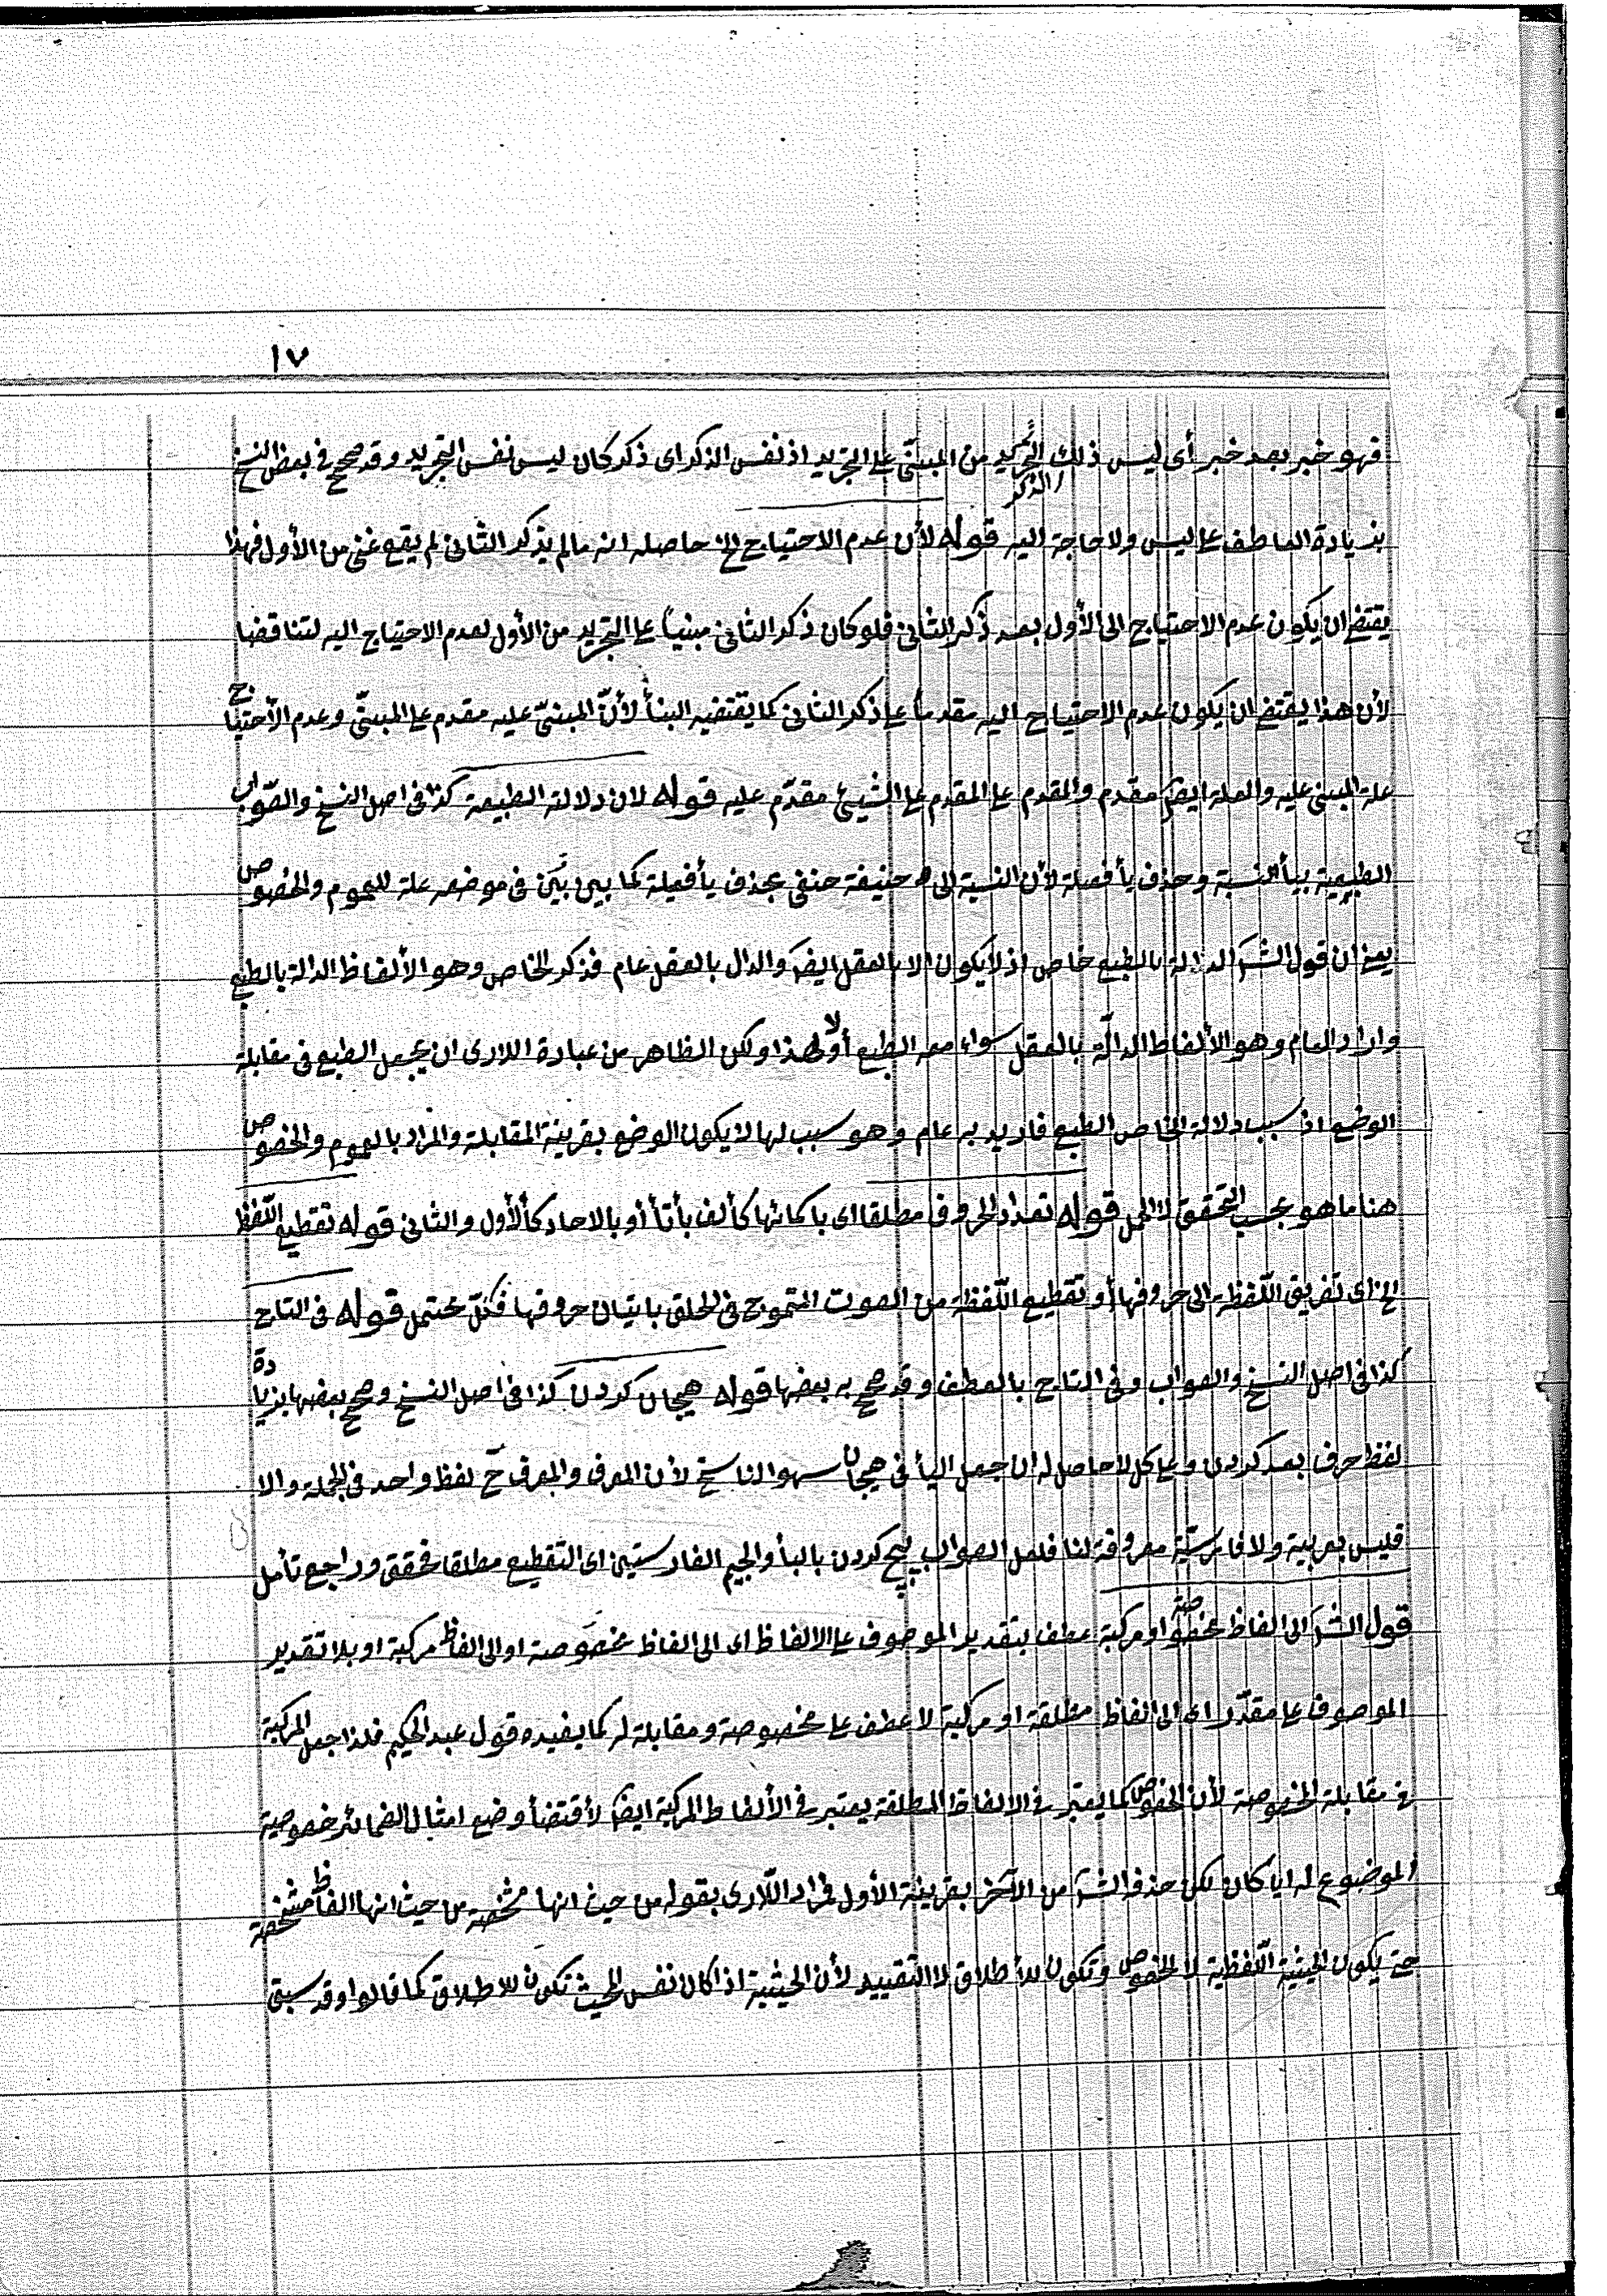 ١٧
فهو خبر بعد خبر أى ليس ذلك الذكر من المبنىّ على التجريد اذ نفس الذكر اى ذكر كان ليس نفس التجريد وقد صحح فى بعض النسخ
بزيادة العاطف على ليس ولا حاجة اليه قوله لأن عدم الاحتياج الخ حاصله انه مالم يذكر الثانى لم يقع غنى من الأول فهذا
يقتضى ان يكون عدم الاحتياج الى الأول بعد ذكر الثانى فلو كان ذكر الثانى مبنياً على التجريد من الأول لعدم الاحتياج اليه لتناقضا
لأن هذا يقتضى ان يكون عدم الاحتياج اليه مقدماً على ذكر الثانى كما يقتضيه البنأ لأنّ المبنىّ عليه مقدم على المبنىّ وعدم الاحتياج
علة المبنى عليه والعلة ايضاً مقدم والمقدم على المقدم على الشيئ مقدّم عليه قوله لان دلالته الطبيعة كذا فى اصل النسخ والصّواب
الطبيعية بيأ النسبة وحذف يأ فعيلة لأن النسبة الى حنيفة حنفى بحذف يأ فعيلة كما بيّن فى موضعه علة للعموم والخصوص
يعنى ان قول الشَر الدالة بالطبع خاص اذ لا يكون الا بالعقل ايضَ والدال بالعقل عام فذكر الخاص وهو الألفاظ الدالة بالطبع
واراد العام وهو الألفاظ الدالّة بالعقل سواء معه الطبع أولا هذا ولكن الظاهر من عبادة اللارى ان يجعل الطبع فى مقابلة
الوضع اذ سبب دلالة الخاص الطبع فاريد به عام وهو سبب لها لا يكون الوضع بقرينة المقابلة والمراد بالعموم والخصوص
هنا ما هو بحسب التحقق لا الحمل قوله تعداد الحروف مطلقا اى باكمائها كألف بأ تأ أو بالاحاد كالأول والثانى قوله تقطيع اللّفظ
الخ اى تفريق اللّفظة الى حروفها أو تقطيع اللّفظة من الصوت المتموج فى الحلق باتيان حروفها فكلّ محتمل قوله فى التاج
كذا فى اصل النسخ والصواب وفى التاج بالعطف وقد صحح به بعضها قوله هيجان كردن كذا فى اصل النسخ وصحح بعضها بزيادة
لفظ حرف بعد كردن وعلى كل لا حاصل له ان جعل اليأ فى هيجان سهو الناسخ لأن المعرِف والمعرَف حَ لفظ واحد فى الجملة والا
فليس بعربية ولا فارسيّة معروفة لنا فلعل الصواب پيچ كردن بالبأ والجيم الفارستين اى التقطيع مطلقا فحقق وراجع تأمل
قول الشَر الى الفاظ مخصوصة او مركبة عطف بتقدير الموصوف على الالفاظ اى الى الفاظ مخصوصة او الى الفاظ مركبة او بلا تقدير
الموصوف على مقدّر اى الى الفاظ مطلقة او مركبة لا عطف على مخصوصة ومقابلة له كما يفيده قول عبد الحكيم فلذا جعل المركبة
فى مقابلة المخصوصة لأن الخصوص كما يعتبر فى الالفاظ المطلقة يعتبر فى الألفاظ المركبة ايضاً لأقتضأ وضع امثال الضمائر خصوصية
الموضوع له ايا كان لكن حذف الشَر من الآخر بقرينة الأول فمراد اللّارى بقوله من حيث انها مشخصة من حيث انها الفاظ مشخصة
حتى يكون الحيثية اللّفظية لا الخصوص وتكون للأطلاق لا التقييد لأن الحيثية اذا كان نفس المحيث تكون للاطلاق كما قالوا وقد سبق